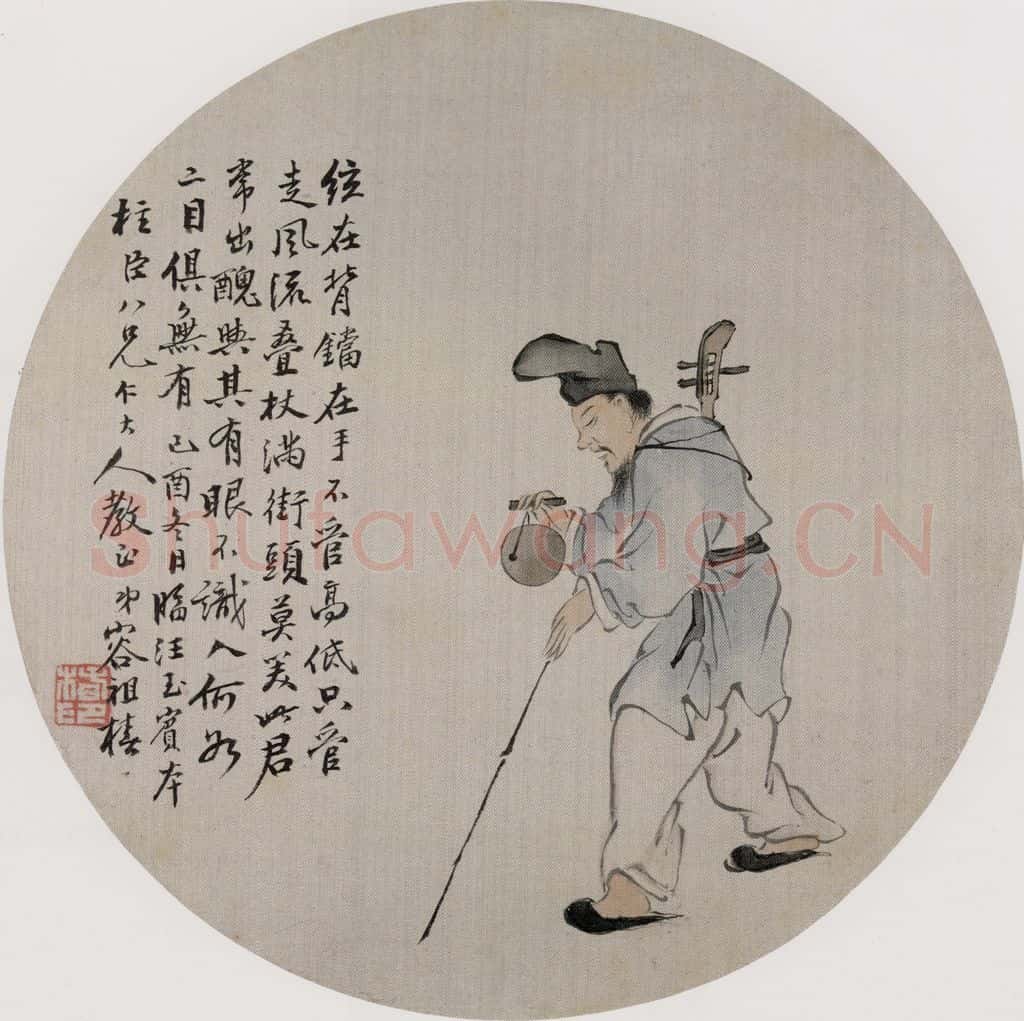 絃在背鐺在手不管高低只管
走風流叠杖满街頭莫笑此君
常出醜與其有眼不識人何如
二目俱無有 己酉冬日臨汪玉賓本
柱臣八兄仁大人教正弟容祖椿
Shufawang.CN